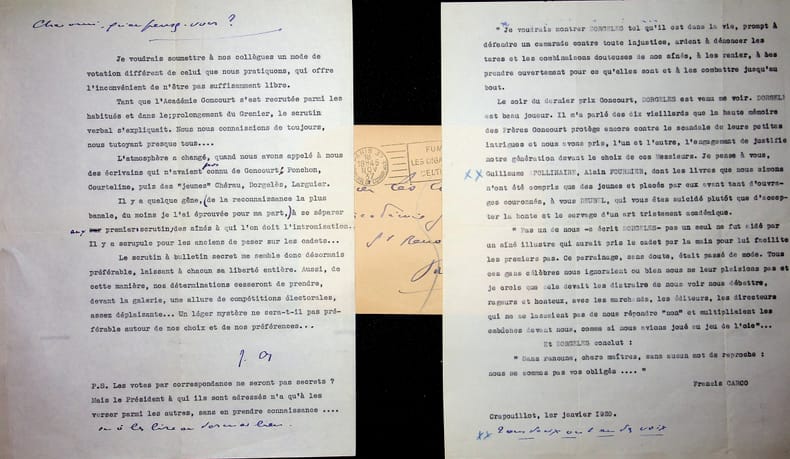 Cher ami, qu'en pensez-vous ?
Je voudrais soumettre à nos collègues un mode de
votation différent de celui que nous pratiquons, qui offre
l'inconvénient de n'être pas suffisamment libre.
Tant que l'Académie Goncourt s'est recrutée parmi les
habitués et dans le prolongement du Grenier, le scrutin
verbal s'expliquait. Nous nous connaissions de toujours,
nous tutoyant presque tous....
L'atmosphère a changé, quand nous avons appelé à nous
des écrivains qui n'avaient pas connu de Goncourt, Ponchon,
Courteline, puis des "jeunes" Chérau, Dorgelès, Larguier.
Il y a quelque gêne, (de la reconnaissance la plus
banale, du moins je l'ai éprouvée pour ma part,) à se séparer
aux premiers scrutins, des aînés à qui l'on doit l'intronisation..
Il y a scrupule pour les anciens de peser sur les cadets...
Le scrutin à bulletin secret me semble donc désormais
préférable, laissant à chacun sa liberté entière. Aussi, de
cette manière, nos déterminations cesseront de prendre,
devant la galerie, une allure de compétitions électorales,
assez déplaisante... Un léger mystère ne sera-t-il pas pré-
férable autour de nos choix et de nos préférences...
P.S. Les votes par correspondance ne seront pas secrets ?
Mais le Président à qui ils sont adressés n'a qu'à les
verser parmi les autres, sans en prendre connaissance ....
ou à les lire en dernier lieu.
PARIS
18H45
NOV
FUM
LES CIGA
CELT
" Je voudrais montrer DORGELES tel qu'il est dans la vie, prompt à
défendre un camarade contre toute injustice, ardent à dénoncer les
tares et les combinaisons douteuses de nos aînés, à les renier, à les
prendre ouvertement pour ce qu'elles sont et à les combattre jusqu'au
bout.
Le soir du dernier prix Goncourt, DORGELES est venu me voir. DORGELE
est beau joueur. Il m'a parlé des dix vieillards que la haute mémoire
des Frères Goncourt protège encore contre le scandale de leurs petites
intrigues et nous avons pris, l'un et l'autre, l'engagement de justifie
notre génération devant le choix de ces Messieurs. Je pense à vous,
xx Guillaume APOLLINAIRE, Alain FOURNIER, dont les livres que nous aimons
n'ont été compris que des jeunes et placés par eux avant tant d'ouvra-
ges couronnés, à vous DEUBEL, qui vous êtes suicidé plutôt que d'accep-
ter la honte et le servage d'un art tristement académique.
" Pas un de nous -a écrit DORGELES- pas un seul ne fut aidé par
un aîné illustre qui aurait pris le cadet par la main pour lui facilite
les premiers pas. Ce parrainage, sans doute, était passé de mode. Tous
ces gens célèbres nous ignoraient ou bien nous ne leur plaisions pas et
je crois que cela devait les distraire de nous voir nous débattre,
rageurs et honteux, avec les marchands, les éditeurs, les directeurs
qui ne se lassaient pas de nous répondre "non" et multipliaient les
embûches devant nous, comme si nous avions joué au jeu de l'oie"...
Et DORGELES conclut :
" Sans rancune, chers maîtres, sans aucun mot de reproche :
nous ne sommes pas vos obligés .... "
Francis CARCO
Crapouillot, 1er janvier 1920.
xx Tous deux ont eu des voix